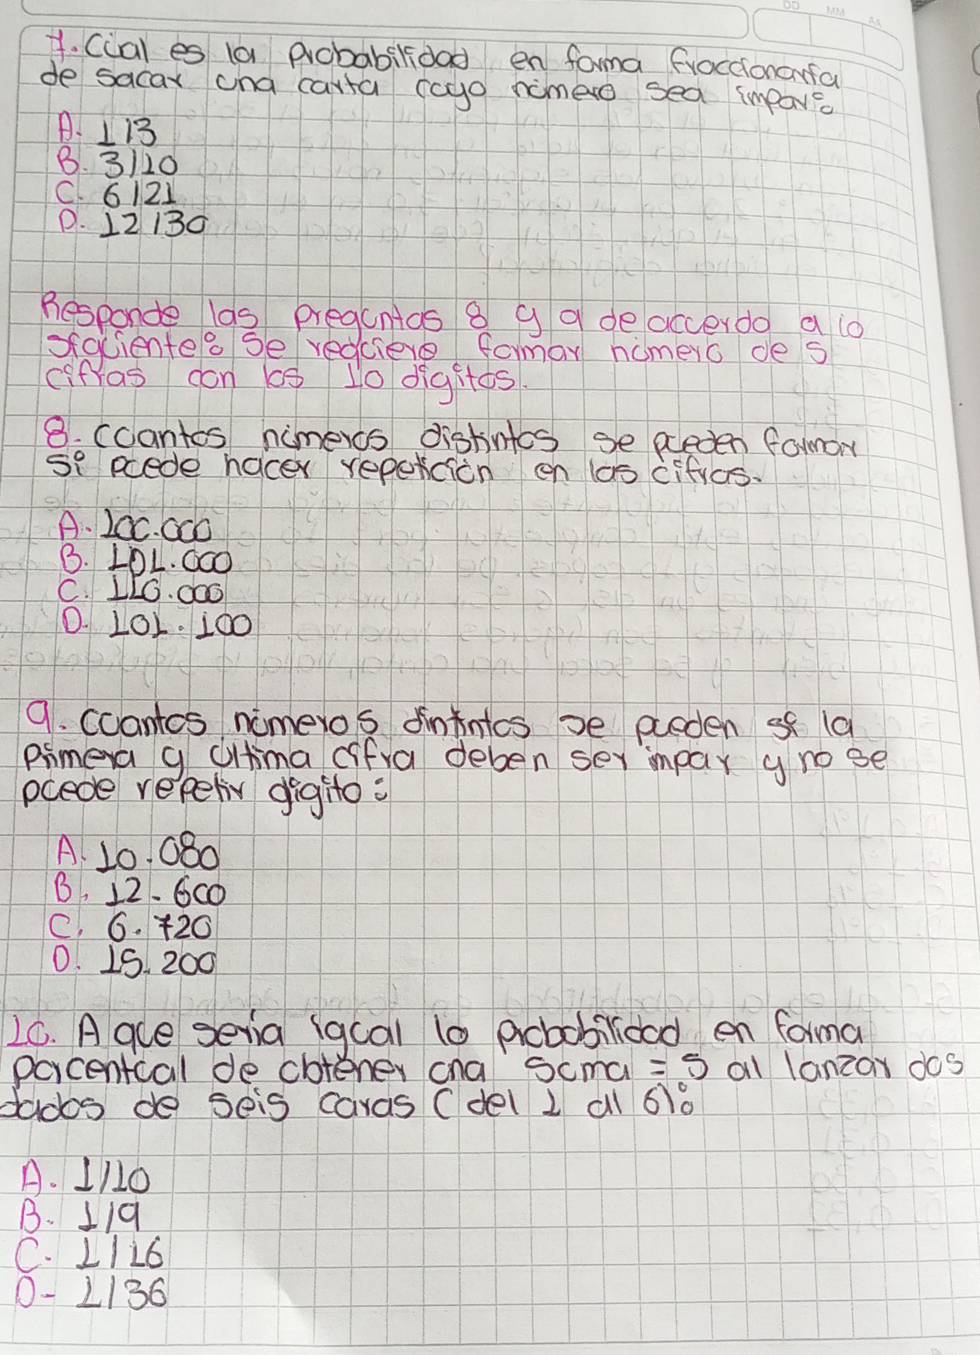 DD MM AA
7. Cúal es la probabilidad en forma fraccionaria
de sacar una carta cuyo número sea impar:
A. 1/3
B. 3/10
C. 6/21
D. 12/30
Responde las preguntas 8 y 9 de acuerdo a lo
siguiente: se requiere formar número de 5
cifras con los 10 digitos.
8. cuantos números distintos se pueden formar
si puede hacer repetición en las cifras.
A. 100.000
B. 101.000
C. 110.000
D. 101.100
9. cuantos números dintintos se pueden si la
primera y última cifra deben ser impar y no se
puede repetir digito:
A. 10.080
B. 12.600
C. 6.720
D. 15.200
10. A que seria igual lo probabilidad en forma
porcentual de obtener una suma = 5 al lanzar dos
dados de seis caras (del 1 al 6):
A. 1/10
B. 1/9
C. 1/16
D- 1/36